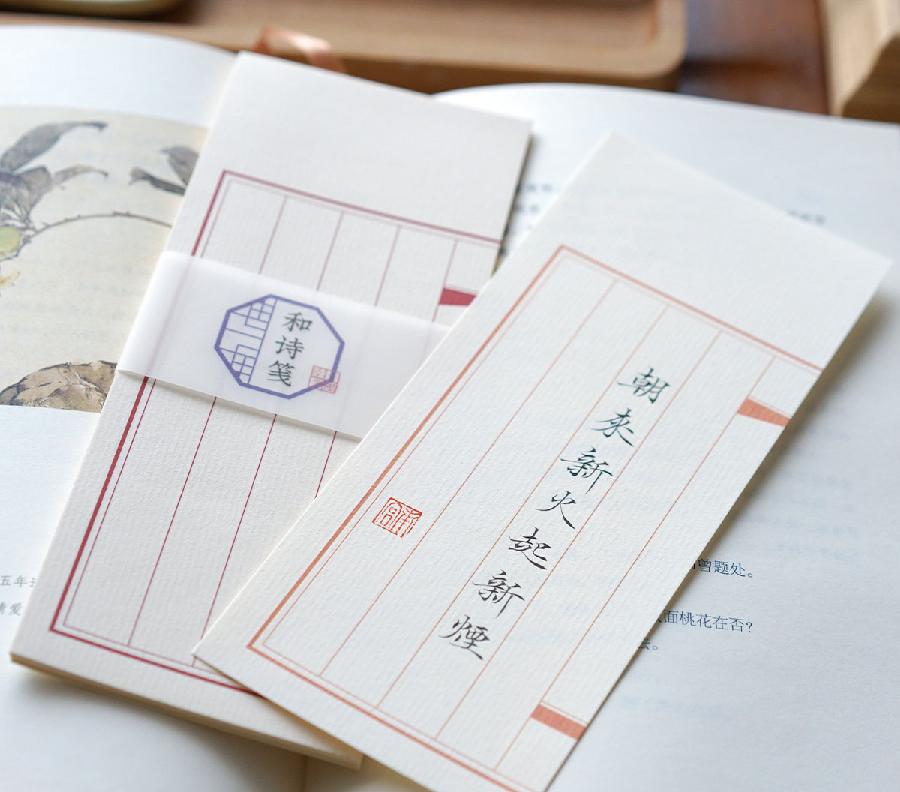 和诗笺
朝來新火起新煙
曾题处。
面桃花在否?
五年